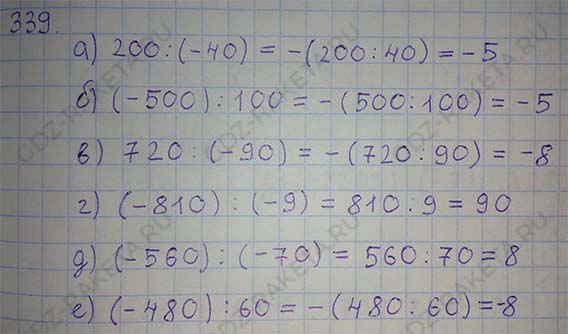 339.
а) 200 : (-40) = -(200 : 40) = -5
б) (-500) : 100 = -(500 : 100) = -5
в) 720 : (-90) = -(720 : 90) = -8
г) (-810) : (-9) = 810 : 9 = 90
д) (-560) : (-70) = 560 : 70 = 8
е) (-480) : 60 = -(480 : 60) = -8
GDZ-RAKETA.RU